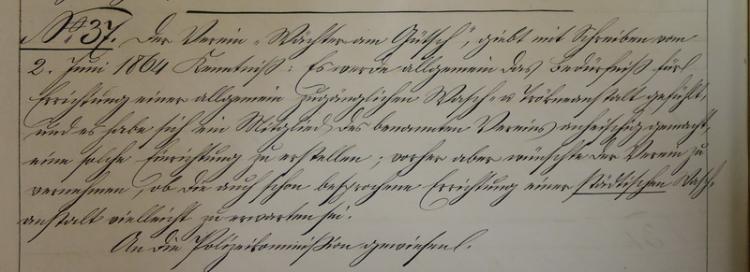 No. 37. Der Verein „Wächter am Gütsch", giebt mit Schreiben vom
2. Juni 1864 Kenntniß: Es werde allgemein das Bedürfniß für
Errichtung einer allgemein zugänglichen Wasch- u Tröckneanstalt gefühlt,
und es habe sich ein Mitglied des benannten Vereins anheischig gemacht,
eine solche Einrichtung zu erstellen; vorher aber wünschte der Verein zu
vernehmen, ob die auch schon besprochene Errichtung einer städtischen Wasch-
anstalt vielleicht zu erwarten sei.
An die Polizeikommission gewiesen.